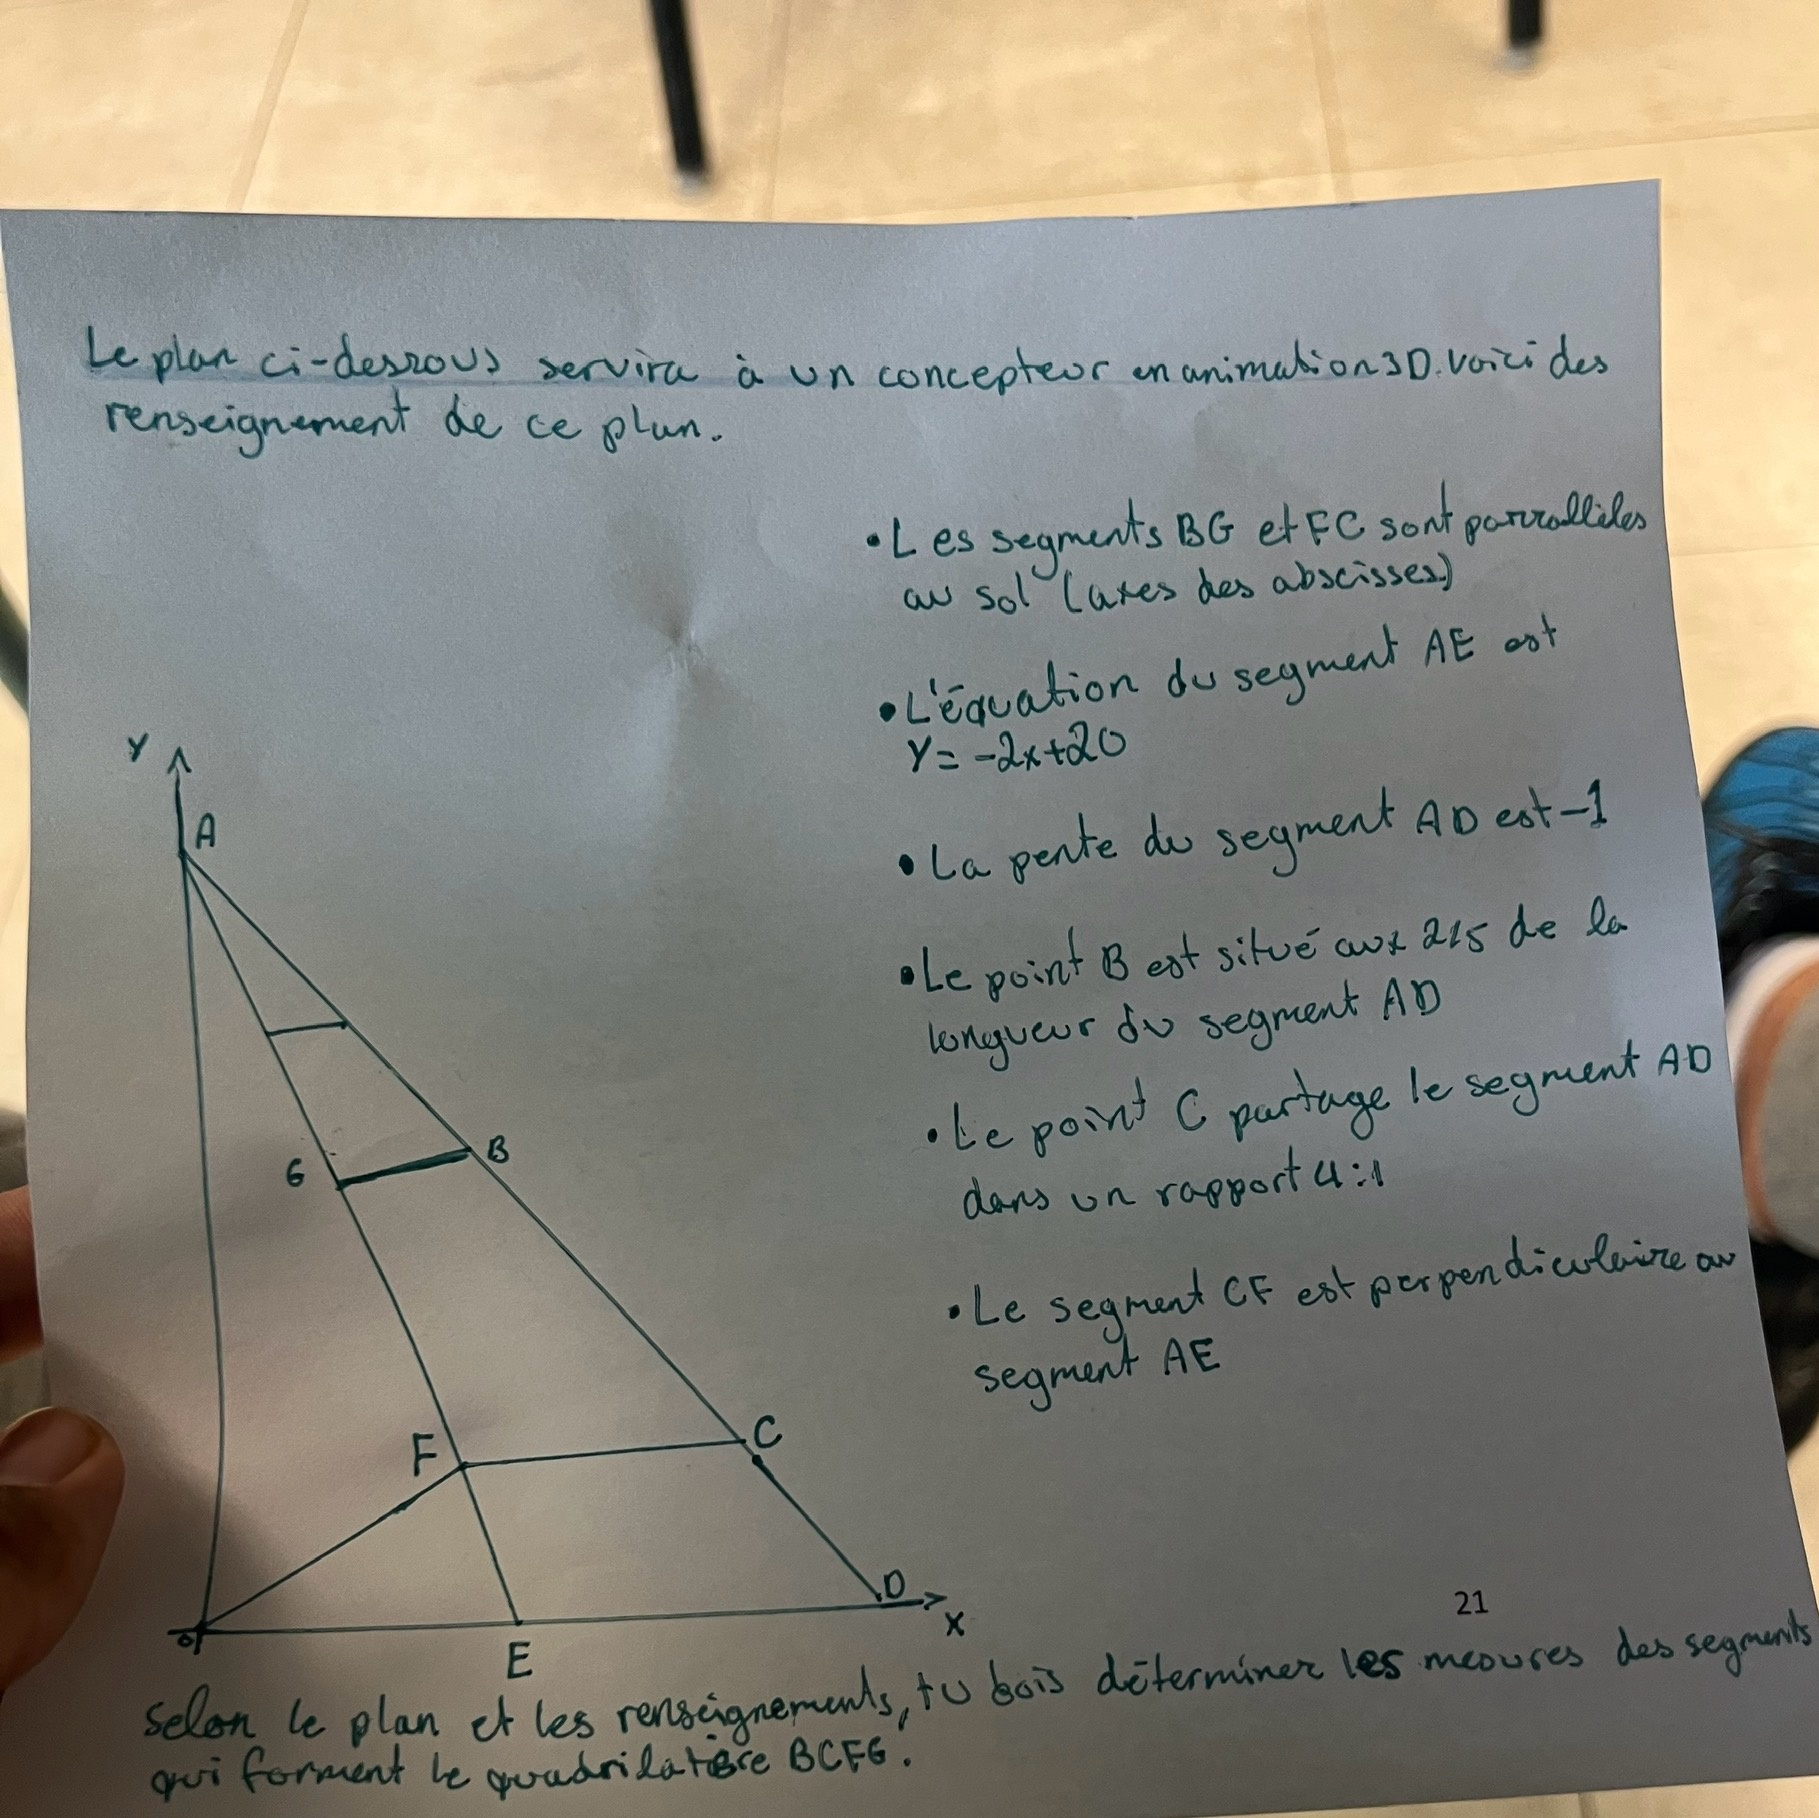 Le plan ci-dessous servira à un concepteur en animation 3D. Voici des
renseignement de ce plan.
• Les segments BG et FC sont parrallèles
au sol (axes des abscisses)
• L'équation du segment AE est
Y = -2x+20
• La pente du segment AD est -1
• Le point B est situé aux 2/5 de la
longueur du segment AD
• Le point C partage le segment AD
dans un rapport 4:1
• Le segment CF est perpendiculaire au
segment AE
Y
A
B
G
F
C
D
X
E
21
Selon le plan et les renseignements, tu dois déterminer les mesures des segments
qui forment le quadrilatère BCFG.